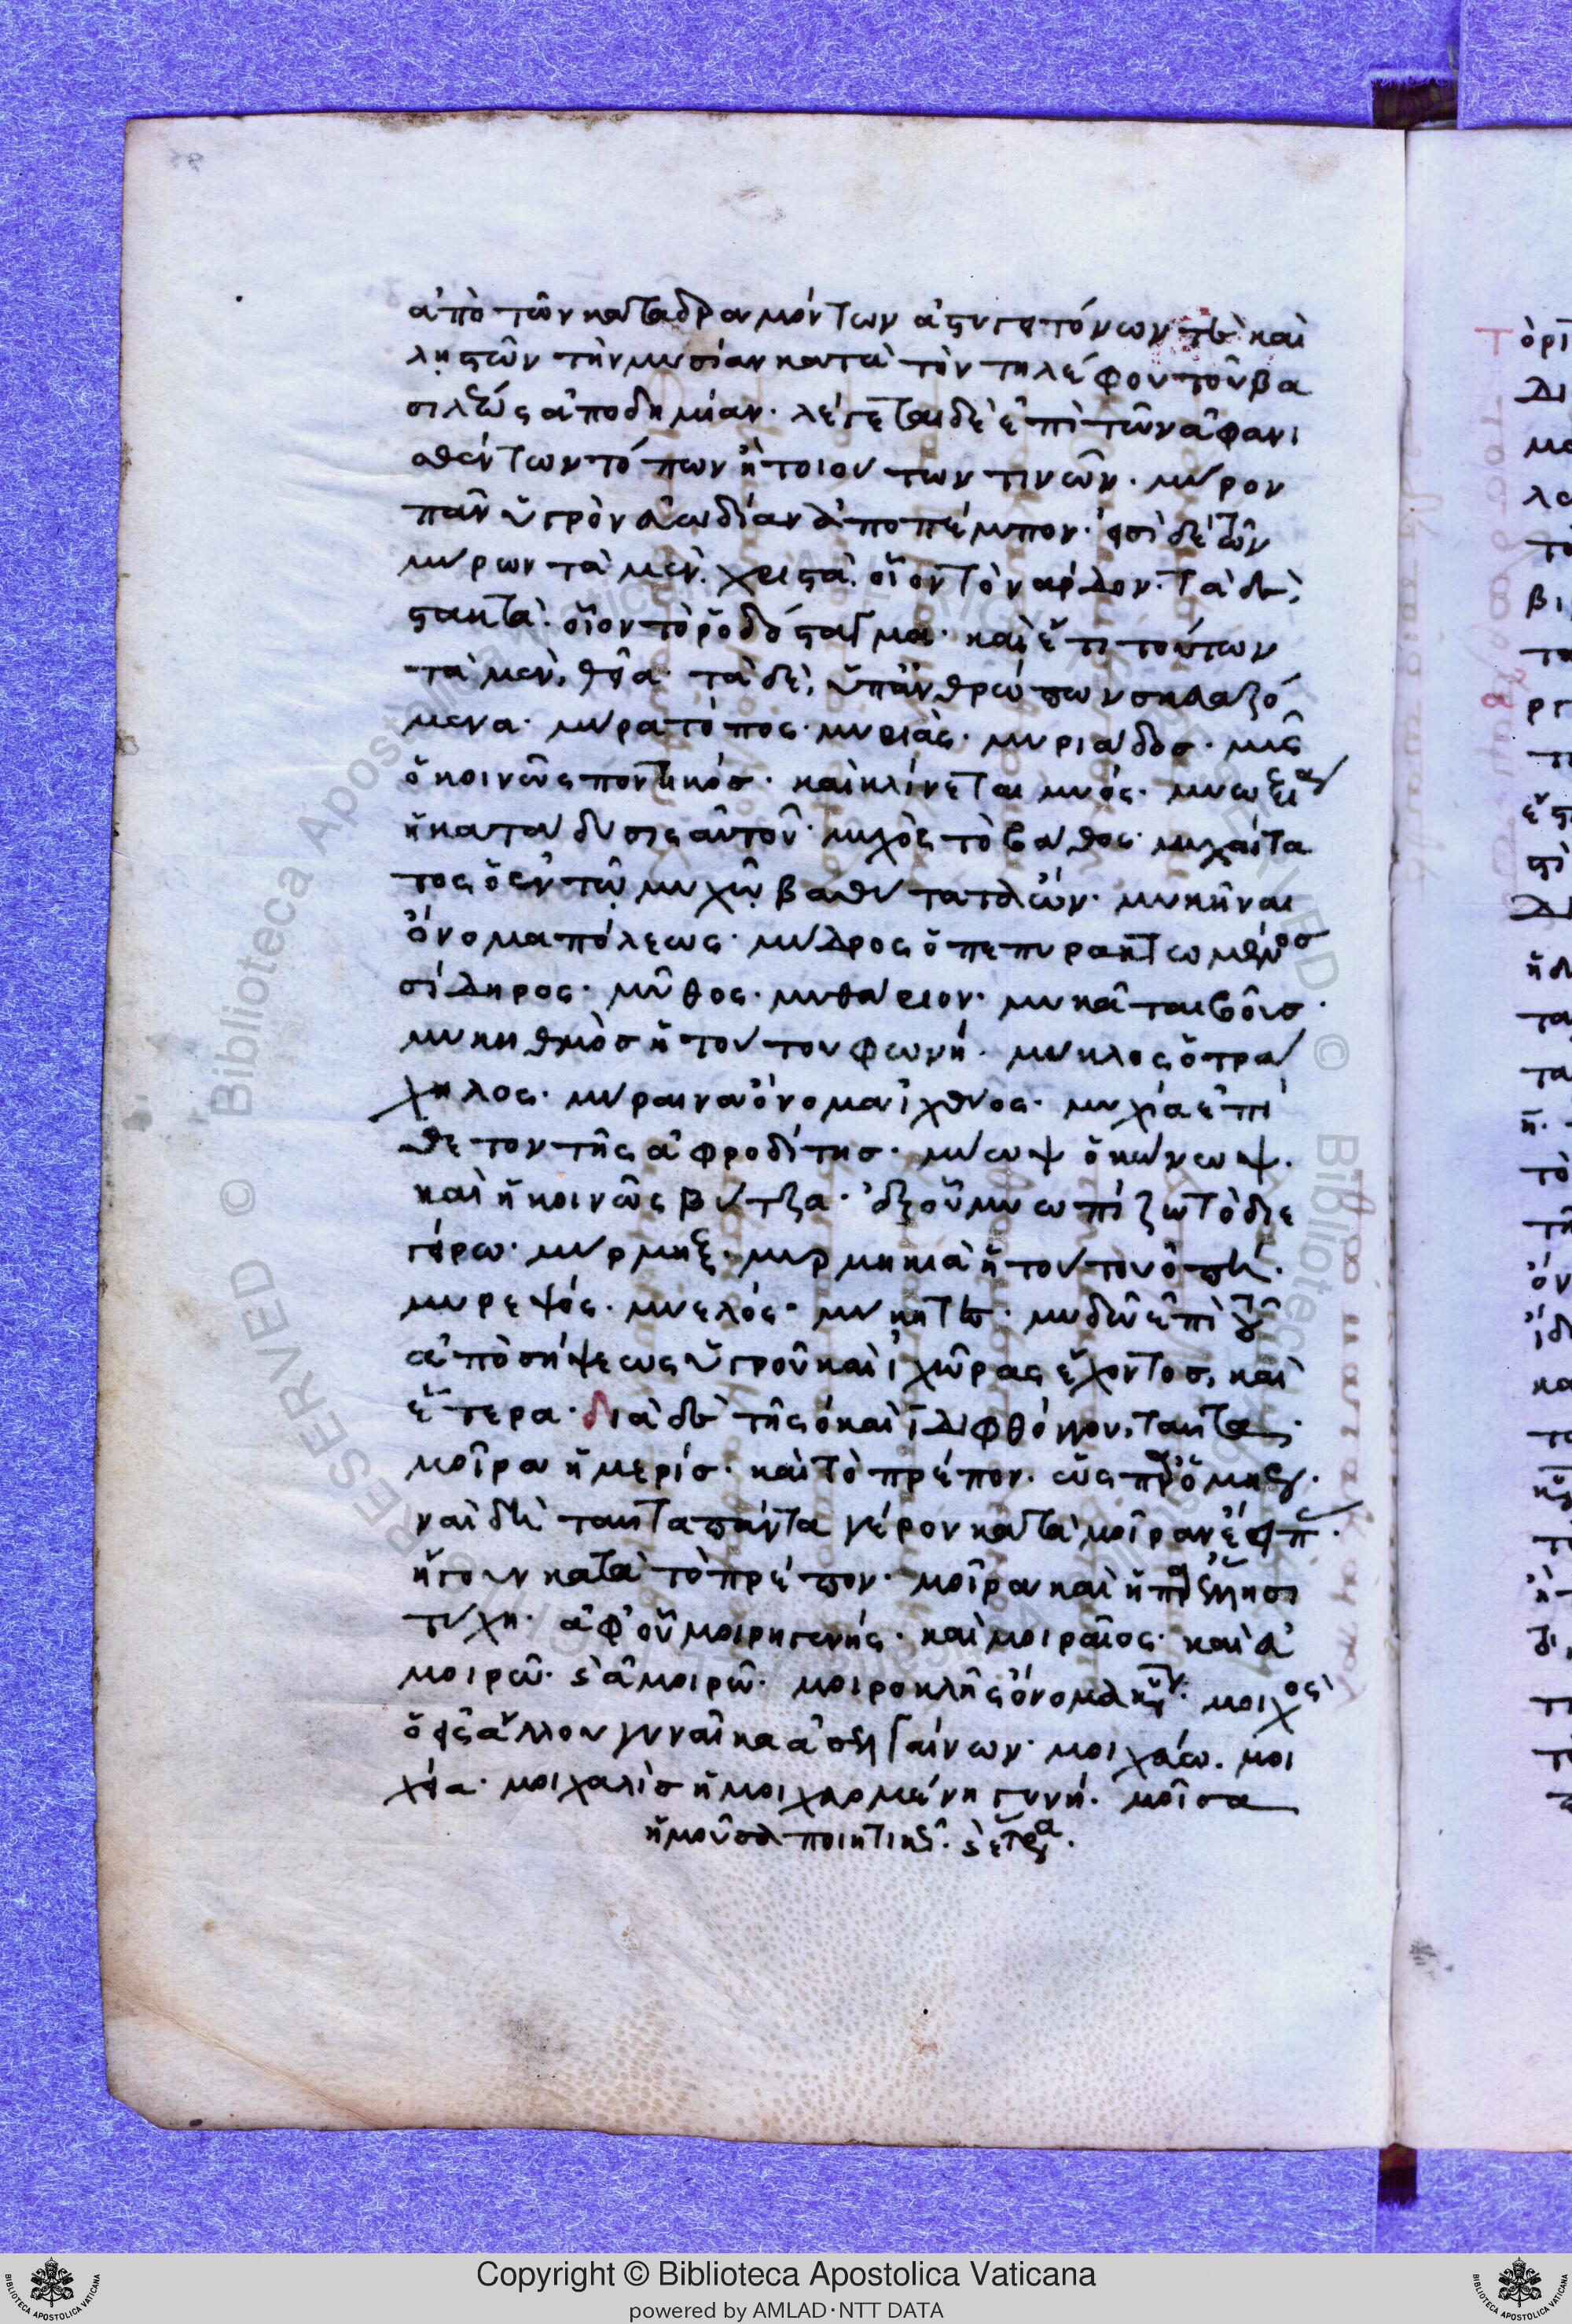 ἀπὸ τῶν καταδραμόντων ἀστυγειτόνων τὲ καὶ
ληστῶν τὴν μυσίαν κατὰ τὴν τηλέφου τοῦ βα
σιλέως ἀποδημίαν· λέγεται δὲ ἐπὶ τῶν ἀφανι
σθέντων τόπων ἢ τοιούτων τινῶν· μύρον
πᾶν ὑγρὸν εὐωδίαν ἀποπέμπον· εἰσὶ δὲ τῶν
μύρων τὰ μὲν, χριστὰ· οἷον τὸ νάρδον· τὰ δὲ,
στακτὰ· οἷον τὸ ῥοδόσταγμα· καὶ ἔτι τούτων
τὰ μὲν, θεῖα· τὰ δὲ, ὑπ' ἀνθρώπων σκευαζό
μενα· μύρα τόπος· μυριὰς· μυριάδος· μῦς
ὁ κοινῶς ποντικός· καὶ κλίνεται μυός· μυωξία
ἡ κατάδυσις αὐτοῦ· μυχὸς τὸ βάθος· μυχαίτα
τος ὁ ἐν τῷ μυχῷ βαθυτάτῳ ὤν· μυκῆναι
ὄνομα πόλεως· μύδρος ὁ πεπυρακτωμένος
σίδηρος· μῦθος· μυθάριον· μυκᾶται βοῦς·
μυκηθμὸς ἡ τούτου φωνή· μύκλος ὁ τρά
χηλος· μύραινα ὄνομα ἰχθύος· μυχία ἐπί
θετον τῆς ἀφροδίτης· μύωψ ὁ κώνωψ·
καὶ ἡ κοινῶς βύτζα· ἐξ οὗ μυωπίζω τὸ διε
γείρω· μύρμηξ· μυρμηκιὰ ἡ τούτου ὀπή·
μυρεψός· μυελός· μυκτὴρ· μυδῶν ἐπὶ τοῦ
ἀπὸ σήψεως ὑγροῦ καὶ ἰχῶρας ἔχοντος, καὶ
ἕτερα· διὰ δὲ τῆς ο καὶ ι διφθόγγου, ταῦτα·
μοῖρα ἡ μερίς· καὶ τὸ πρέπον· ὡς παρ' ὁμήρῳ·
ναὶ δὴ ταῦτα πάντα γέρον κατὰ μοῖραν ἔειπες·
ἤγουν κατὰ τὸ πρέπον· μοῖρα καὶ ἡ παρ' ἕλλησι
τύχη· ἀφ' οὗ μοιρηγενής· καὶ μοιραῖος· καὶ εὐ
μοιρῶ· καὶ ἀμοιρῶ· μοιροκλῆς ὄνομα κύριον· μοιχὸς
ὁ εἰς ἄλλου γυναῖκα ἀσελγαίνων· μοιχάω· μοι
χεία· μοιχαλὶς ἡ μοιχωμένη γυνή· μοῖσα
ἡ μοῦσα ποιητικῶς· καὶ ἕτερα·
Copyright © Biblioteca Apostolica Vaticana
powered by AMLAD·NTT DATA